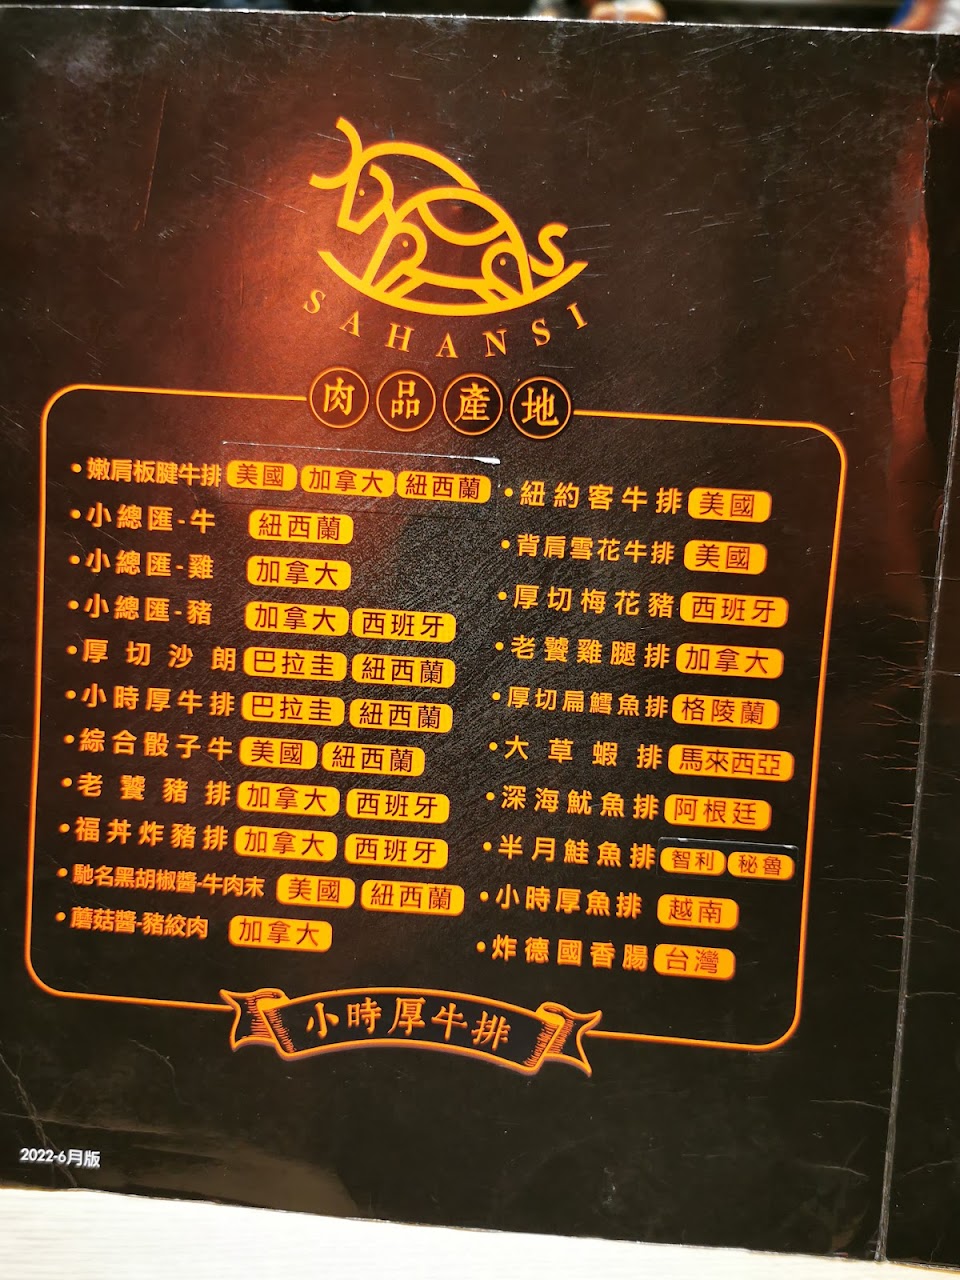 SAHANSI
肉品產地
•嫩肩板腱牛排 美國 加拿大 紐西蘭
•小總匯-牛 紐西蘭
•小總匯-雞 加拿大
•小總匯-豬 加拿大 西班牙
•厚切沙朗 巴拉圭 紐西蘭
•小時厚牛排 巴拉圭 紐西蘭
•綜合骰子牛 美國 紐西蘭
•老饕豬排 加拿大 西班牙
•福丼炸豬排 加拿大 西班牙
•馳名黑胡椒醬-牛肉末 美國 紐西蘭
•蘑菇醬-豬絞肉 加拿大
•紐約客牛排 美國
•背肩雪花牛排 美國
•厚切梅花豬 西班牙
•老饕雞腿排 加拿大
•厚切扁鱈魚排 格陵蘭
•大草蝦排 馬來西亞
•深海魷魚排 阿根廷
•半月鮭魚排 智利 秘魯
•小時厚魚排 越南
•炸德國香腸 台灣
小時厚牛排
2022-6月版